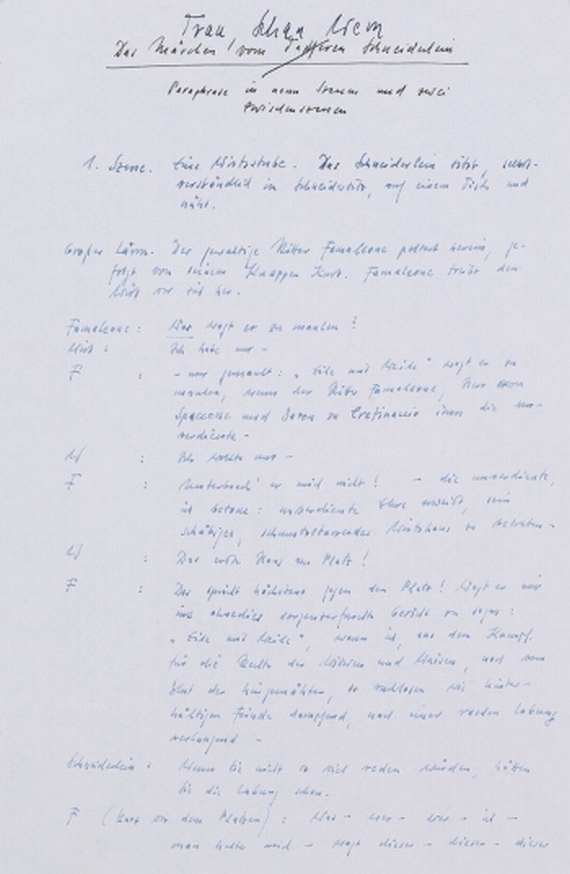 Trau, Schau Wem
Das Märchen vom Tapferen Schneiderlein
Paraphrase in neun Szenen und zwei
Zwischenszenen
1. Szene. Eine Wirtsstube. Das Schneiderlein sitzt, selbst-
verständlich im Schneidersitz, auf einem Tisch und
näht.
Großer Lärm. Der gewaltige Ritter Famaleone poltert herein, ge-
folgt von seinem Knappen Kurt. Famaleone treibt den
Wirt vor sich her.
Famaleone: Was wagt er zu maulen?
Wirt: Ich habe nur –
F: – nur gemault: „Eile mit Weile" wagt er zu
maulen, wenn der Ritter Famaleone, Herr von
und Baron zu ihm die un-
verdiente –
W: Ich wollte nur –
F: Unterbrech' er mich nicht! – die unverdiente,
ich betone: unverdiente Ehre erweist, sein
schäbiges, schmutzstarrendes Wirtshaus zu betreten –
W: Das erste Haus am Platz!
F: Das spricht höchstens gegen den Platz! Wagt er mir
ins ohnedies Gesicht zu sagen:
„Eile mit Weile", wenn ich, aus dem Kampf
für die Rechte der Witwen und Waisen, noch vom
Blut der hingemähten, so ruchlosen wie hinter-
hältigen Feinde dampfend, nach einer raschen Labung
verlangend –
Schneiderlein: Wenn Sie nicht so viel reden würden, hätten
Sie die Labung schon.
F (kurz vor dem Platzen): Was – wer – wer – ich –
man halte mich – wagt dieser – dieser – dieser